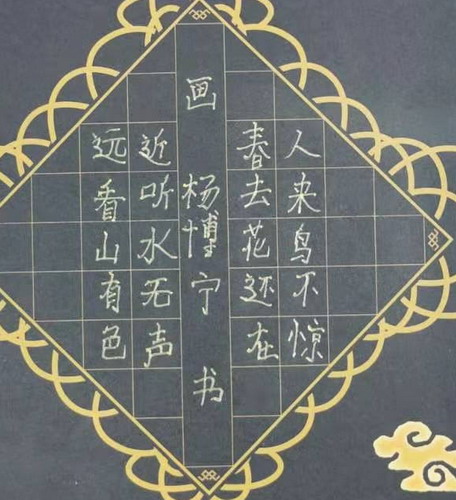 远看山有色
近听水无声
画 杨博宁 书
春去花还在
人来鸟不惊